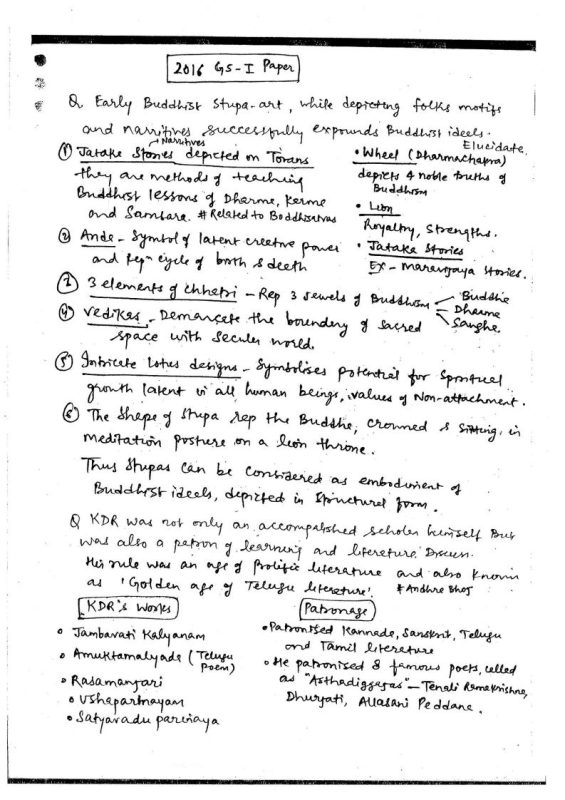 2016 GS-I Paper
Q Early Buddhist Stupa-art, while depicting folks motifs
and narritives successfully expounds Buddhist ideels.
Elucidate.
Narritives
① Jatake Stories depicted on Torans
they are methods of teaching
Buddhist lessons of Dharme, Kerme
and Samsara. # Related to Boddhisatvas
② Ande - Symbol of latent creative power
and repn cycle of birth & deeth
• Wheel (Dharmachakra)
depicts 4 noble truths of
Buddhism
• Lion
Royalty, Strengths.
• Jataka Stories
Ex - Maravijaya Stories.
③ 3 elements of chhetri - Rep 3 Jewels of Buddhism - Buddhe
- Dharme
- Sanghe.
④ Vedikas - Demarcete the boundery of sacred
space with Seculer world.
⑤ Intricete lotus designs - Symbolises potential for Spiritual
growth latent in all human beings, values of Non-attachment.
⑥ The Shape of Stupa rep the Buddhe, crowned & sitting, in
meditation posture on a lion throne.
Thus Stupas can be considered as embodiment of
Buddhist ideels, depicted in Structurel form.
Q KDR was not only an accomplished scholer himself But
was also a patron of learning and litereture. Discuss.
His rule was an age of Prolific litereture and also known
as 'Golden age of Telugu litereture'. # Andhre Bhoj
KDR's Works
• Jambavati Kalyanam
• Amuktamalyade (Telugu
Poem)
• Rasamanjari
• Ushaparinayam
• Satyavadu parinaya
Patronage
• Patronised Kannade, Sanskrit, Telugu
and Tamil litereture
• He patronised 8 famous poets, celled
as "Asthadiggajas" - Tenali Ramekrishne,
Dhurjati, Allasani Peddane.